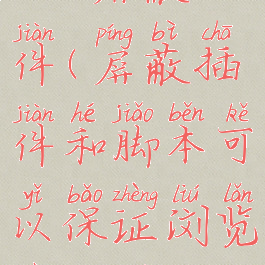 jiàn píng bì chā
件(屏蔽插
jiàn hé jiǎo běn kě
件和脚本可
yǐ bǎo zhèng liú lǎn
以保证浏览